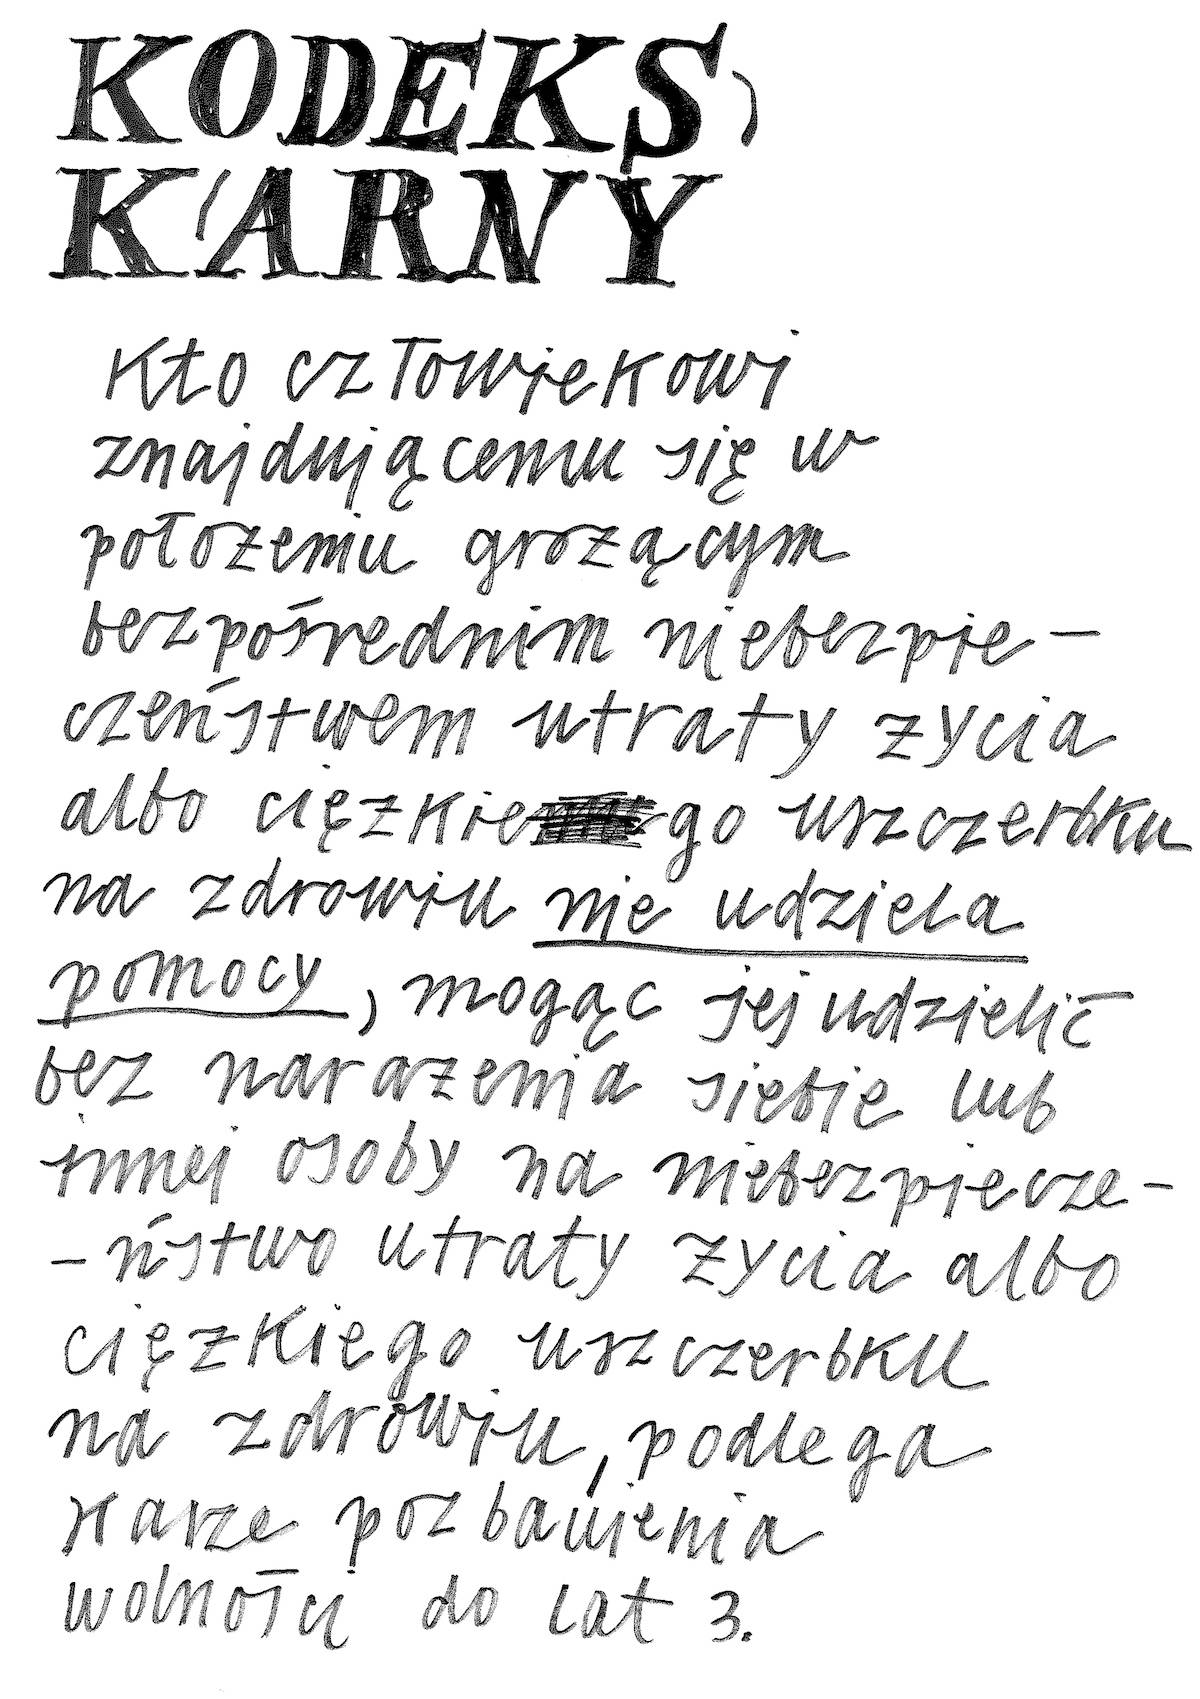 KODEKS
KARNY
Kto człowiekowi
znajdującemu się w
położeniu grożącym
bezpośrednim niebezpie-
czeństwem utraty życia
albo ciężkiego uszczerbku
na zdrowiu nie udziela
pomocy, mogąc jej udzielić
bez narażenia siebie lub
innej osoby na niebezpiecze-
-ństwo utraty życia albo
ciężkiego uszczerbku
na zdrowiu, podlega
karze pozbawienia
wolności do lat 3.